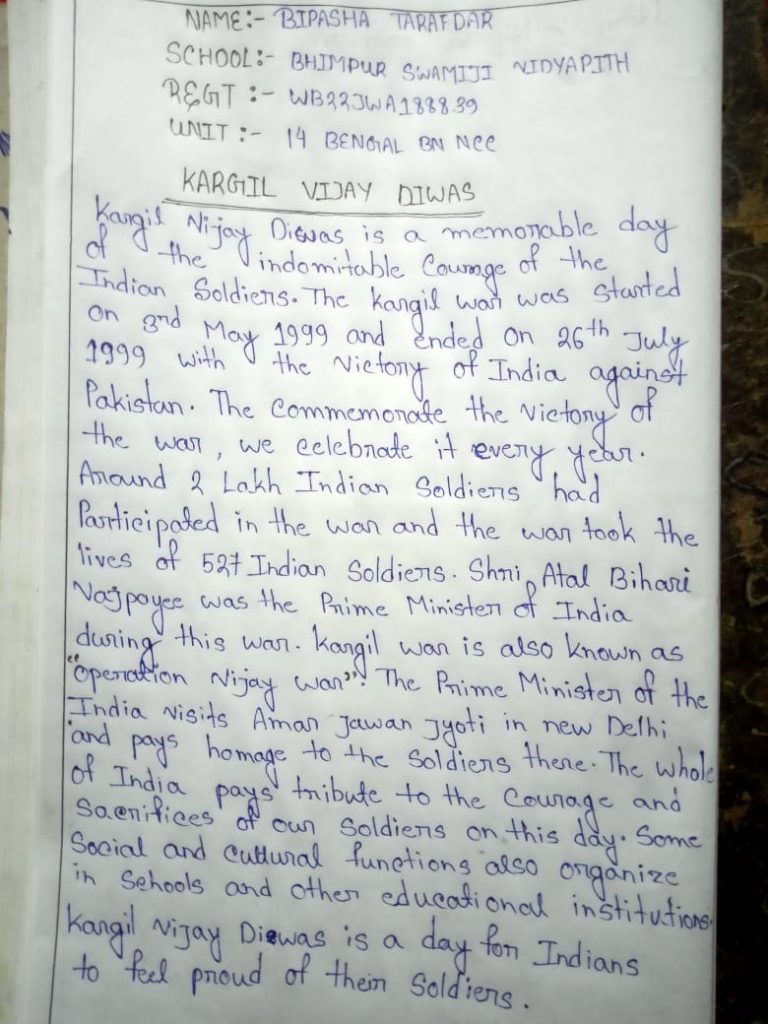 NAME:- BIPASHA TARAFDAR
SCHOOL:- BHIMPUR SWAMIJI VIDYAPITH
REGT :- WB22JWA188839
UNIT :- 14 BENGAL BN NCC
KARGIL VIJAY DIWAS
Kargil Vijay Diwas is a memorable day
of the indomitable Courage of the
Indian Soldiers. The Kargil war was started
on 3rd May 1999 and ended on 26th July
1999 with the victory of India against
Pakistan. The Commemorate the victory of
the war, we celebrate it every year.
Around 2 Lakh Indian Soldiers had
Participated in the war and the war took the
lives of 527 Indian Soldiers. Shri Atal Bihari
Vajpoyee was the Prime Minister of India
during this war. Kargil war is also known as
"operation Vijay war". The Prime Minister of the
India visits Amar Jawan Jyoti in new Delhi
and pays homage to the Soldiers there. The whole
of India pays tribute to the Courage and
Sacrifices of our Soldiers on this day. Some
Social and cultural functions also organize
in Schools and other educational institutions.
Kargil Vijay Diewas is a day for Indians
to feel proud of their Soldiers.